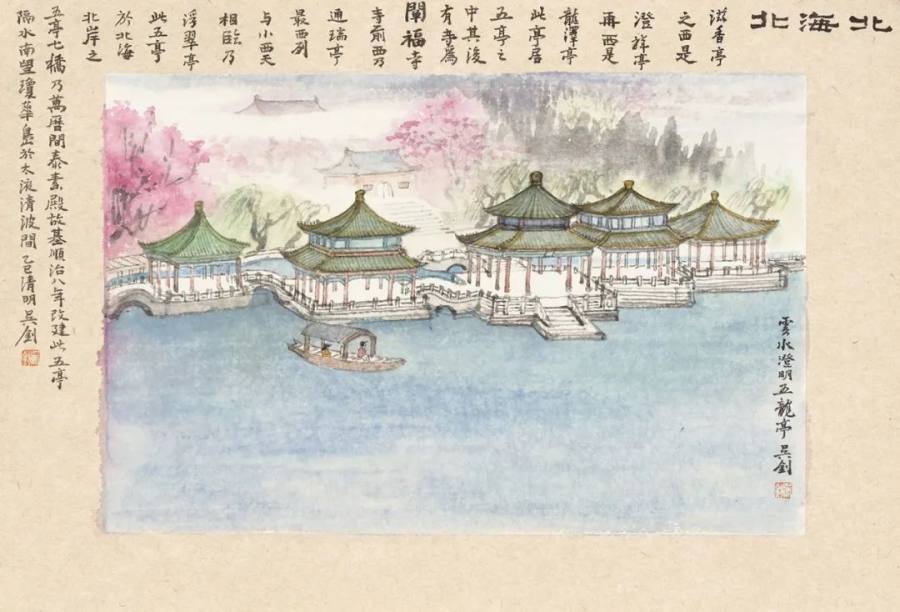 北海北
滋香亭
之西是
澄祥亭
再西是
龍澤亭
此亭居
五亭之
中其後
有寺為
闡福寺
寺前西乃
通瑞亭
最西列
与小西天
相臨乃
浮翠亭
此五亭
於北海
北岸之
五亭七橋乃萬曆間泰素殿故基順治八年改建此五亭
隔水南望瓊華島於太液清波間 乙巳清明 吴釗
雲水澄明五龍亭 吴釗